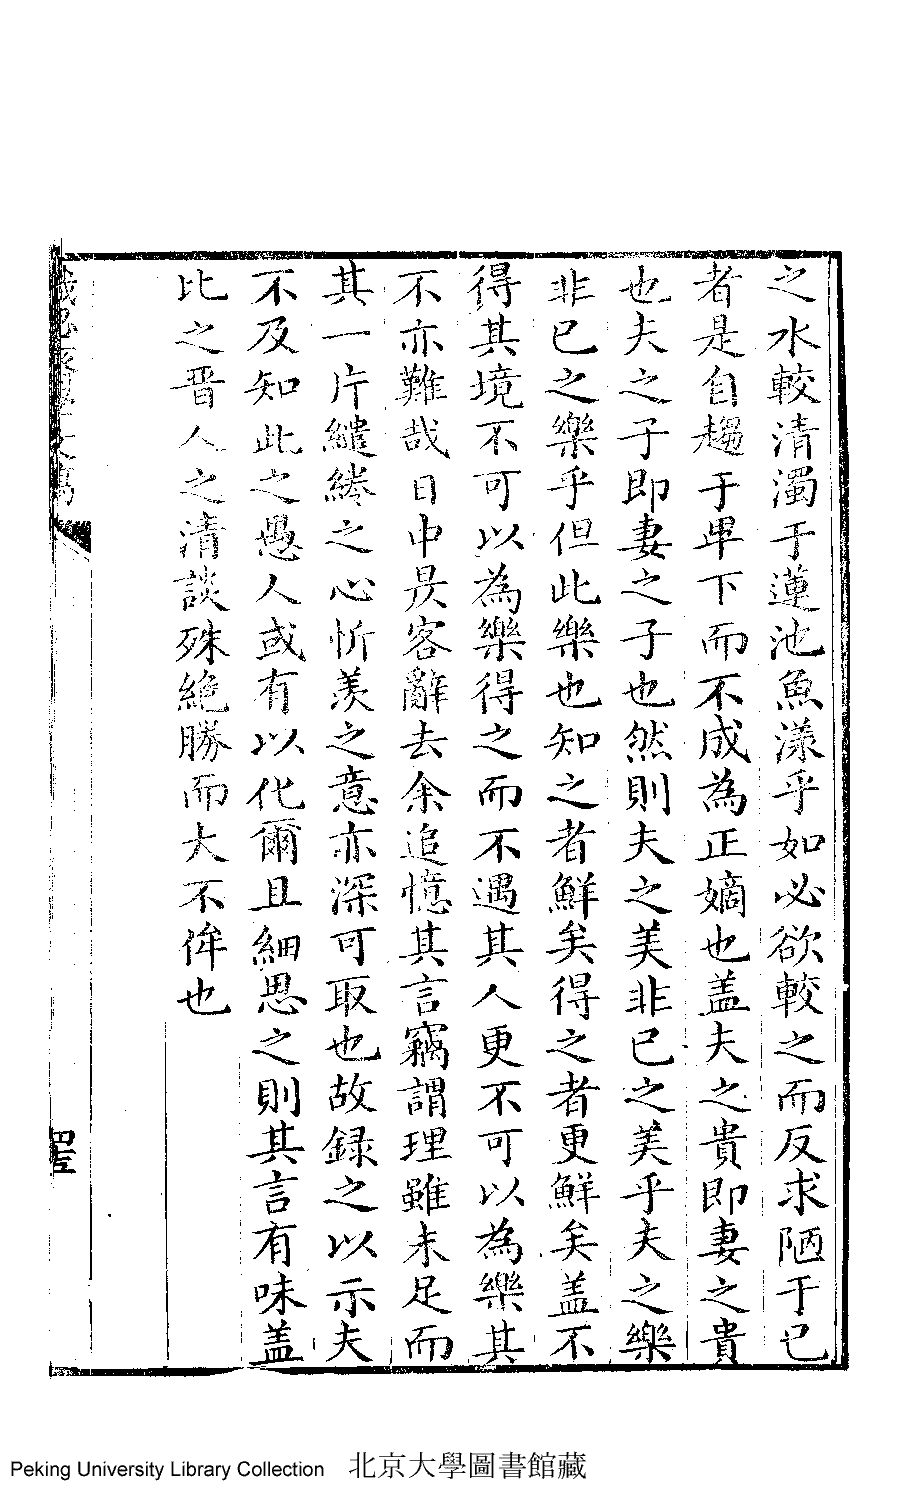 之水較清濁于蓮池魚漾乎如必欲較之而反求陋于已
者是自趨于卑下而不成為正嫡也盖夫之貴即妻之貴
也夫之子即妻之子也然則夫之美非已之美乎夫之樂
非已之樂乎但此樂也知之者鮮矣得之者更鮮矣盖不
得其境不可以為樂得之而不遇其人更不可以為樂其
不亦難哉日中昃客辭去余追憶其言竊謂理雖未足而
其一片繾綣之心忻羨之意亦深可取也故録之以示夫
不及知此之愚人或有以化爾且細思之則其言有味盖
比之晋人之清談殊絶勝而大不侔也
Peking University Library Collection 北京大學圖書館藏